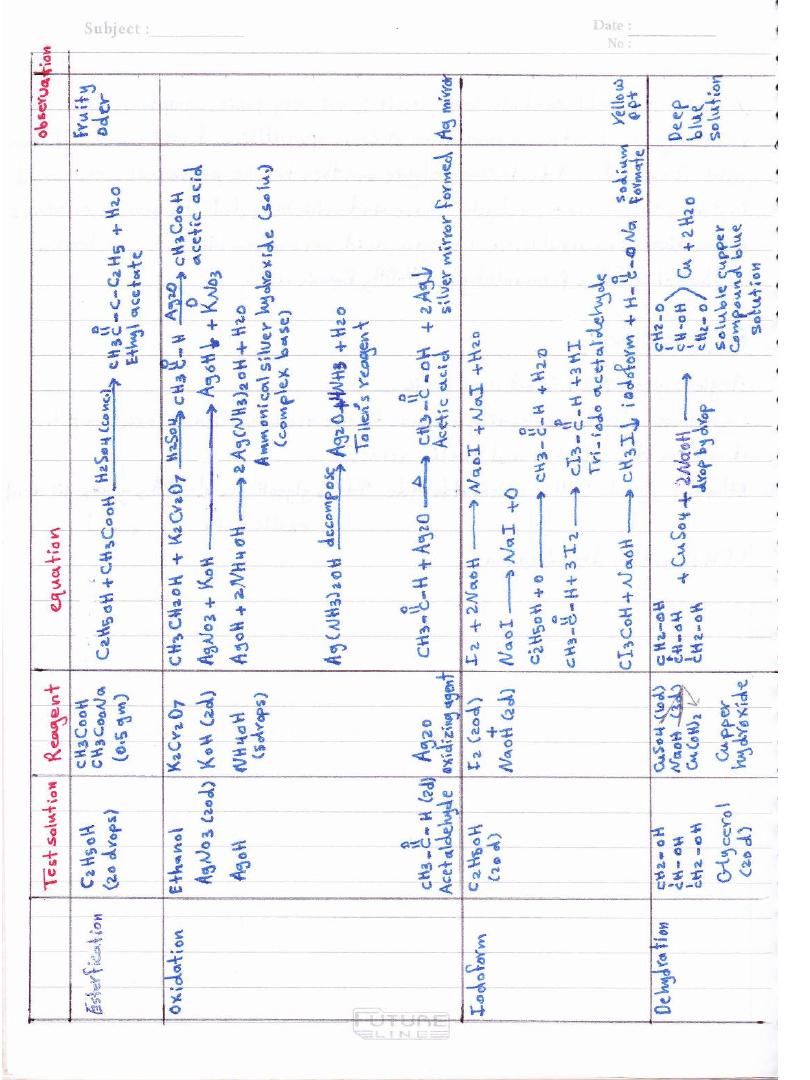 Subject :
Date :
No :
Test solution
Reagent
equation
observation
Esterfication
C2H5OH
(20 drops)
CH3COOH
CH3COONa
(0.5 gm)
C2H5OH + CH3COOH H2SO4 (conc) → CH3C-C-C2H5 + H2O
O
Ethyl acetate
Fruity
oder
Oxidation
Ethanol
K2Cr2O7
CH3CH2OH + K2Cr2O7 H2SO4 → CH3C-H Ag2O → CH3COOH
O
acetic acid
AgNO3 (20d)
KOH (2d)
AgNO3 + KOH → AgOH↓ + KNO3
AgOH
NH4OH
(5drops)
AgOH + 2NH4OH → 2Ag(NH3)2OH + H2O
Ammonical silver hydroxide (solu.)
(complex base)
Ag(NH3)2OH decompose → Ag2O + 4NH3 + H2O
Tollen's reagent
CH3-C-H (2d)
O
Acetaldehyde
Ag2O
oxidizing agent
CH3-C-H + Ag2O △ → CH3-C-OH + 2Ag↓
O
O
Acetic acid
silver mirror formed
Ag mirror
Iodoform
C2H5OH
(20 d)
I2 (20d)
+
NaOH (2d)
I2 + 2NaOH → NaOI + NaI + H2O
NaOI → NaI + O
C2H5OH + O → CH3-C-H + H2O
O
CH3-C-H + 3I2 → CI3-C-H + 3HI
O
O
Tri-iodo acetaldehyde
CI3COH + NaOH → CH3I↓ iodoform + H-C-O Na
O
sodium
formate
Yellow
ppt
Dehydration
CH2-OH
CH-OH
CH2-OH
Glycerol
(20 d)
CuSO4 (10d)
NaOH (2d)
Cu(OH)2
Cupper
hydroxide
CH2-OH
CH-OH
CH2-OH
+ CuSO4 + 2NaOH →
drop by drop
CH2-O
CH-OH
CH2-O
Cu + 2H2O
Soluble cupper
Compound blue
solution
Deep
blue
solution
FUTURE
LINE